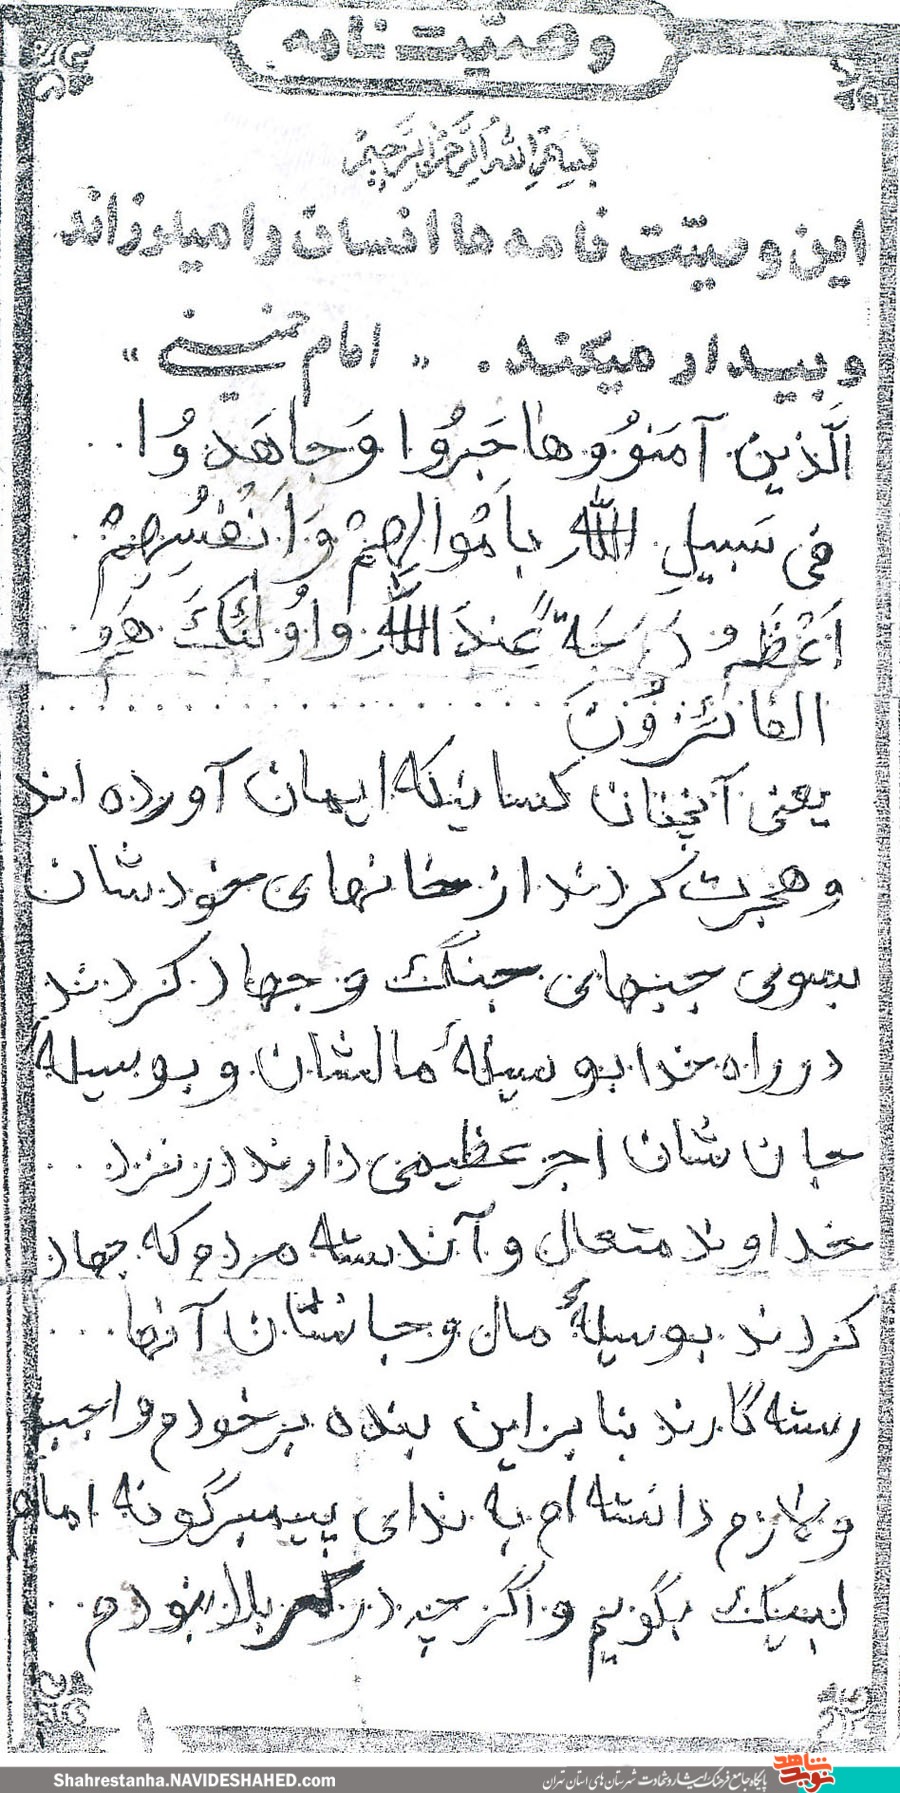 وصیّت نامه
بِسْمِ اللهِ الرَّحْمٰنِ الرَّحیمْ
این وصیّت نامه ها انسان را میلرزاند
و بیدار میکند . « امام خمینی »
الَّذین آمَنوُ وُ هاجَروُا وَ جاهَدوُا ..
فی سَبیلِ اللهِ باَمْوالِهِمْ وَ اَنْفُسِهِمْ
اَعْظَمُ دَرَجَةً عِندَ اللهِ وَ اوُلئکَ هَمُ
الفائزوُنَ
یعنی آنچنان کساینکه ایمان آورده اند
و هجرت کردند از خانهای خودشان
بسوی جبهای جنگ و جهاد کردند
در راه خدا بوسیلهٔ مالشان و بوسیلهٔ
جان شان اجر عظیمی دارند در نزد ..
خداوند متعال و آندسته مردم که جهاد
کردند بوسیلهٔ مال و جانشان آنها ...
رسته گارند بنا براین بنده بر خودم واجب
و لازم دانسته ام به ندای پیمبرگونه امام
لبیک بگویم و اگر چه در کربلا نبودم ..
Shahrestanha.NAVIDESHAHED.com
پایگاه جامع فرهنگ ایثار و شهادت شهرستان های استان تهران
نوید شاهد